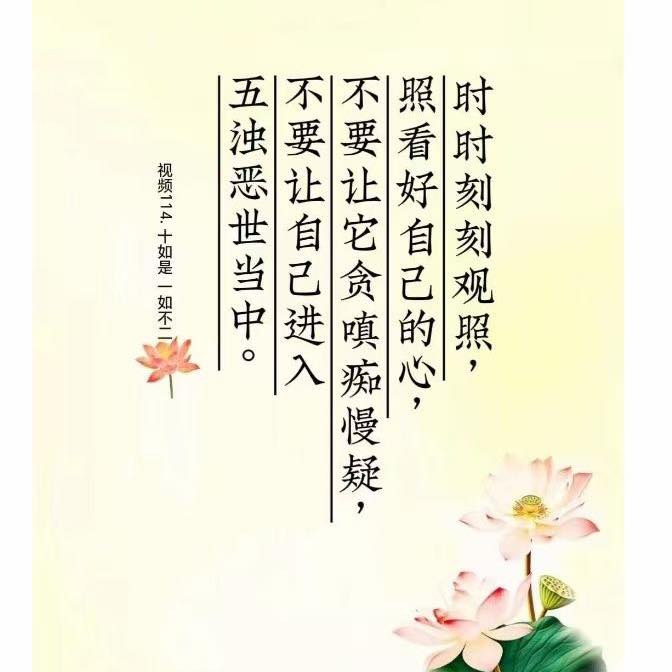 时时刻刻观照，
照看好自己的心，
不要让它贪嗔痴慢疑，
不要让自己进入
五浊恶世当中。
视频114.十如是 一如不二